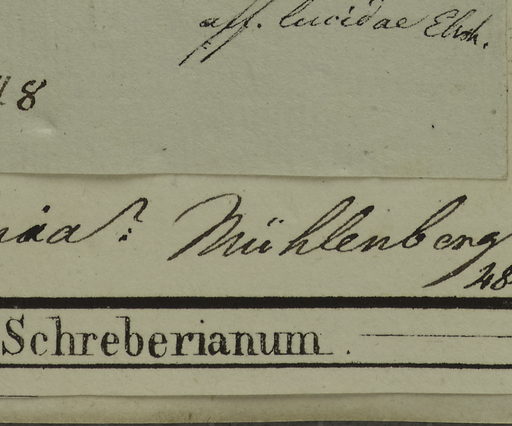 aff. lucidae Ehrh.
48
Mühlenberg
48
Schreberianum